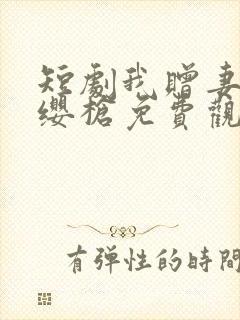 短劇我贈妻
纓槍免費觀
有弹性的時間